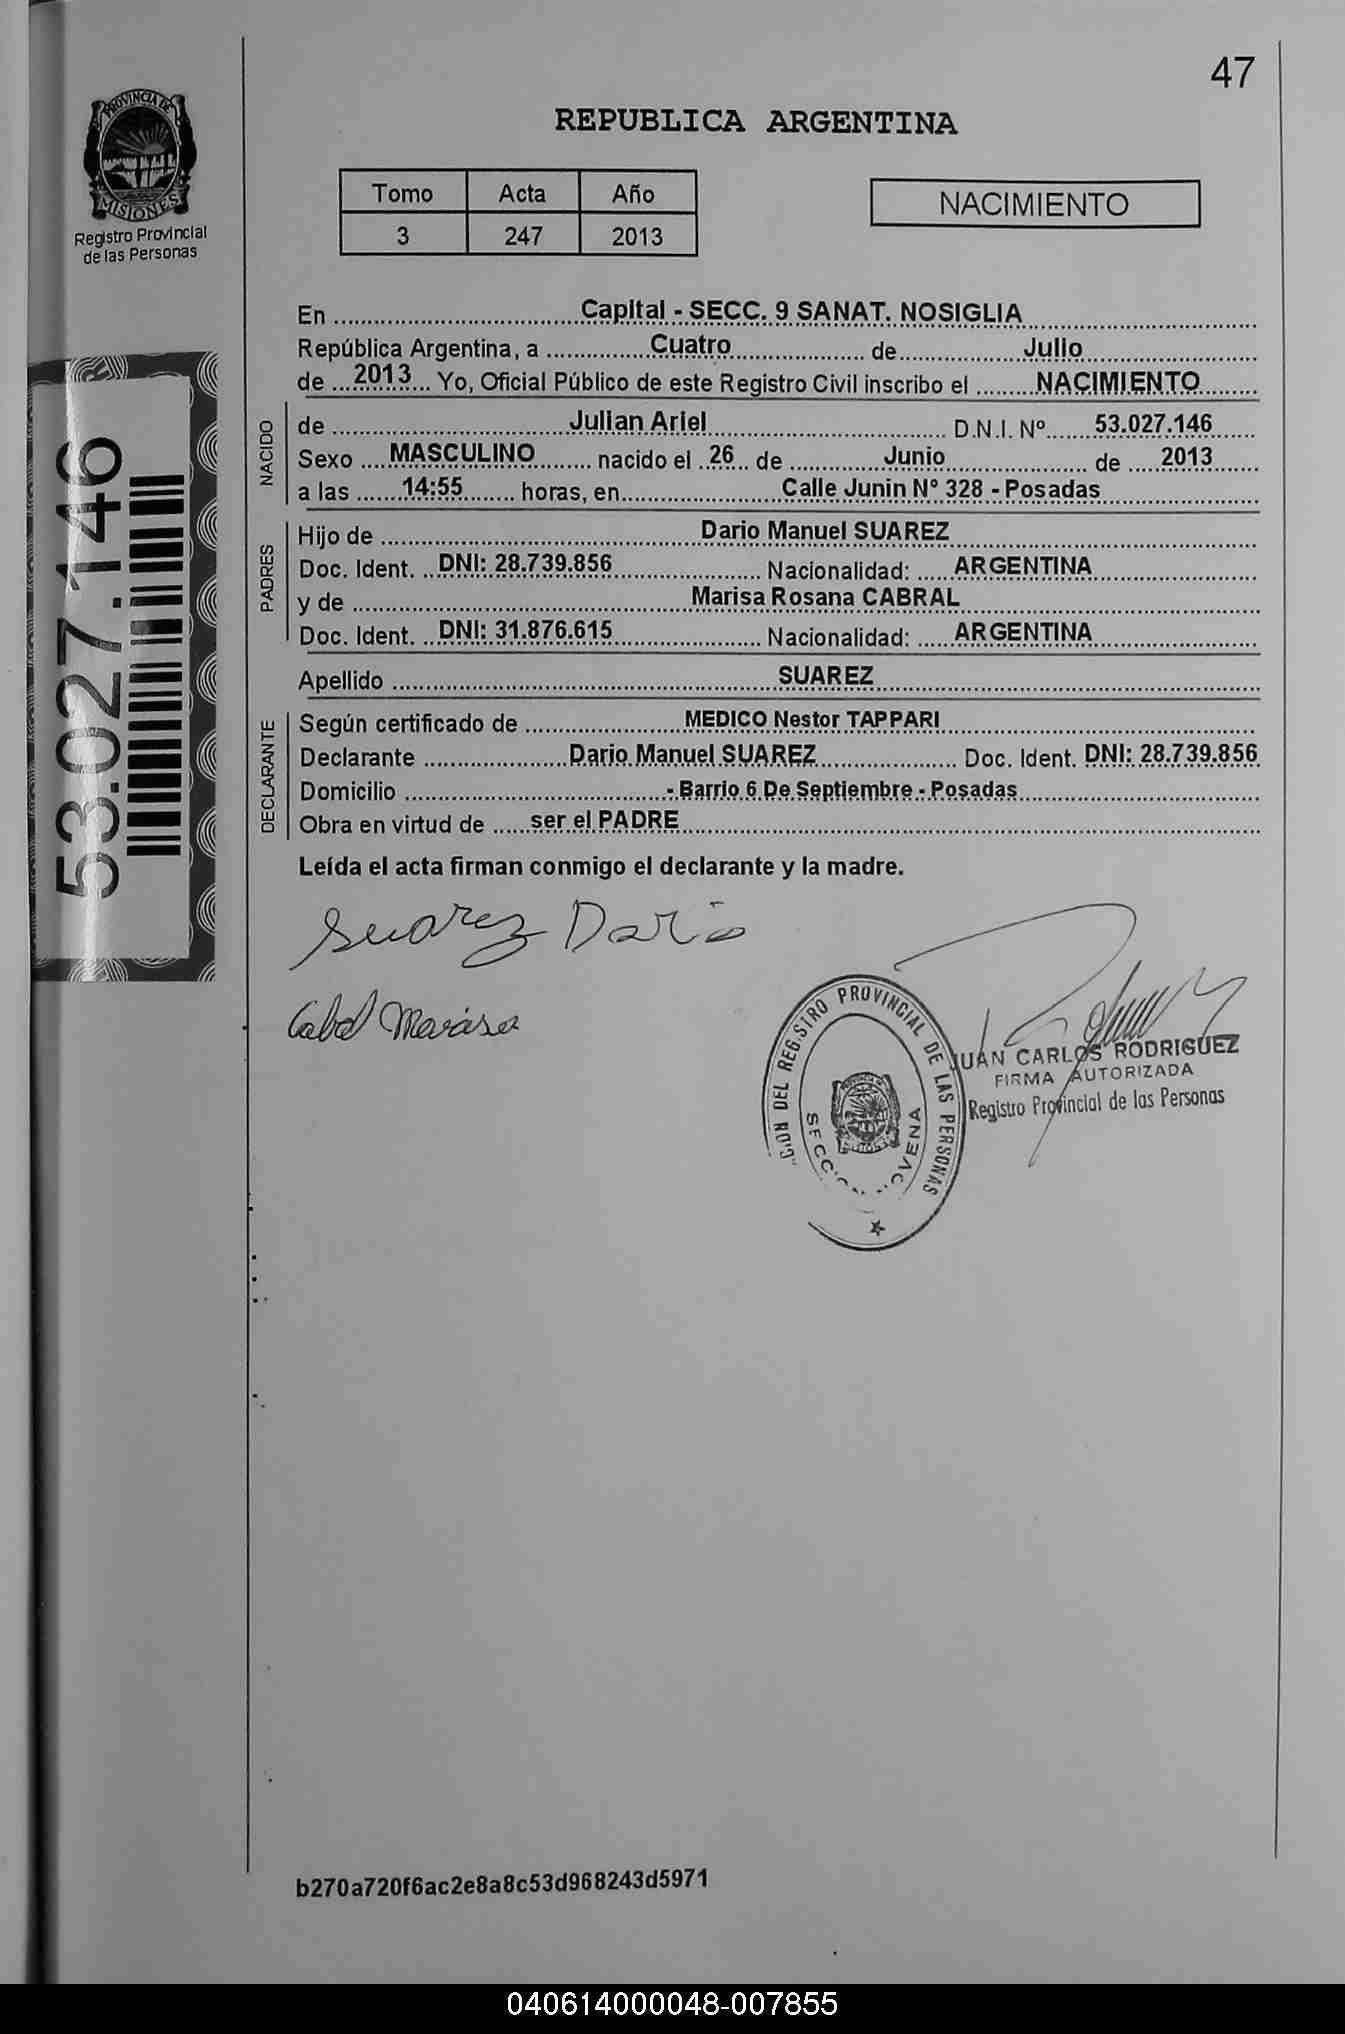 47
PROVINCIA DE
MISIONES
Registro Provincial
de las Personas
REPUBLICA ARGENTINA
Tomo Acta Año
3 247 2013
NACIMIENTO
En Capital - SECC. 9 SANAT. NOSIGLIA
República Argentina, a Cuatro de Julio
de 2013 Yo, Oficial Público de este Registro Civil inscribo el NACIMIENTO
NACIDO
de Julian Ariel D.N.I. Nº 53.027.146
Sexo MASCULINO nacido el 26 de Junio de 2013
a las 14:55 horas, en Calle Junin N° 328 - Posadas
PADRES
Hijo de Dario Manuel SUAREZ
Doc. Ident. DNI: 28.739.856 Nacionalidad: ARGENTINA
y de Marisa Rosana CABRAL
Doc. Ident. DNI: 31.876.615 Nacionalidad: ARGENTINA
Apellido SUAREZ
DECLARANTE
Según certificado de MEDICO Nestor TAPPARI
Declarante Dario Manuel SUAREZ Doc. Ident. DNI: 28.739.856
Domicilio - Barrio 6 De Septiembre - Posadas
Obra en virtud de ser el PADRE
Leída el acta firman conmigo el declarante y la madre.
53.027.146
Suarez Dario
JUAN CARLOS RODRIGUEZ
FIRMA AUTORIZADA
Registro Provincial de las Personas
DEL REGISTRO PROVINCIAL DE LAS PERSONAS
b270a720f6ac2e8a8c53d968243d5971
040614000048-007855